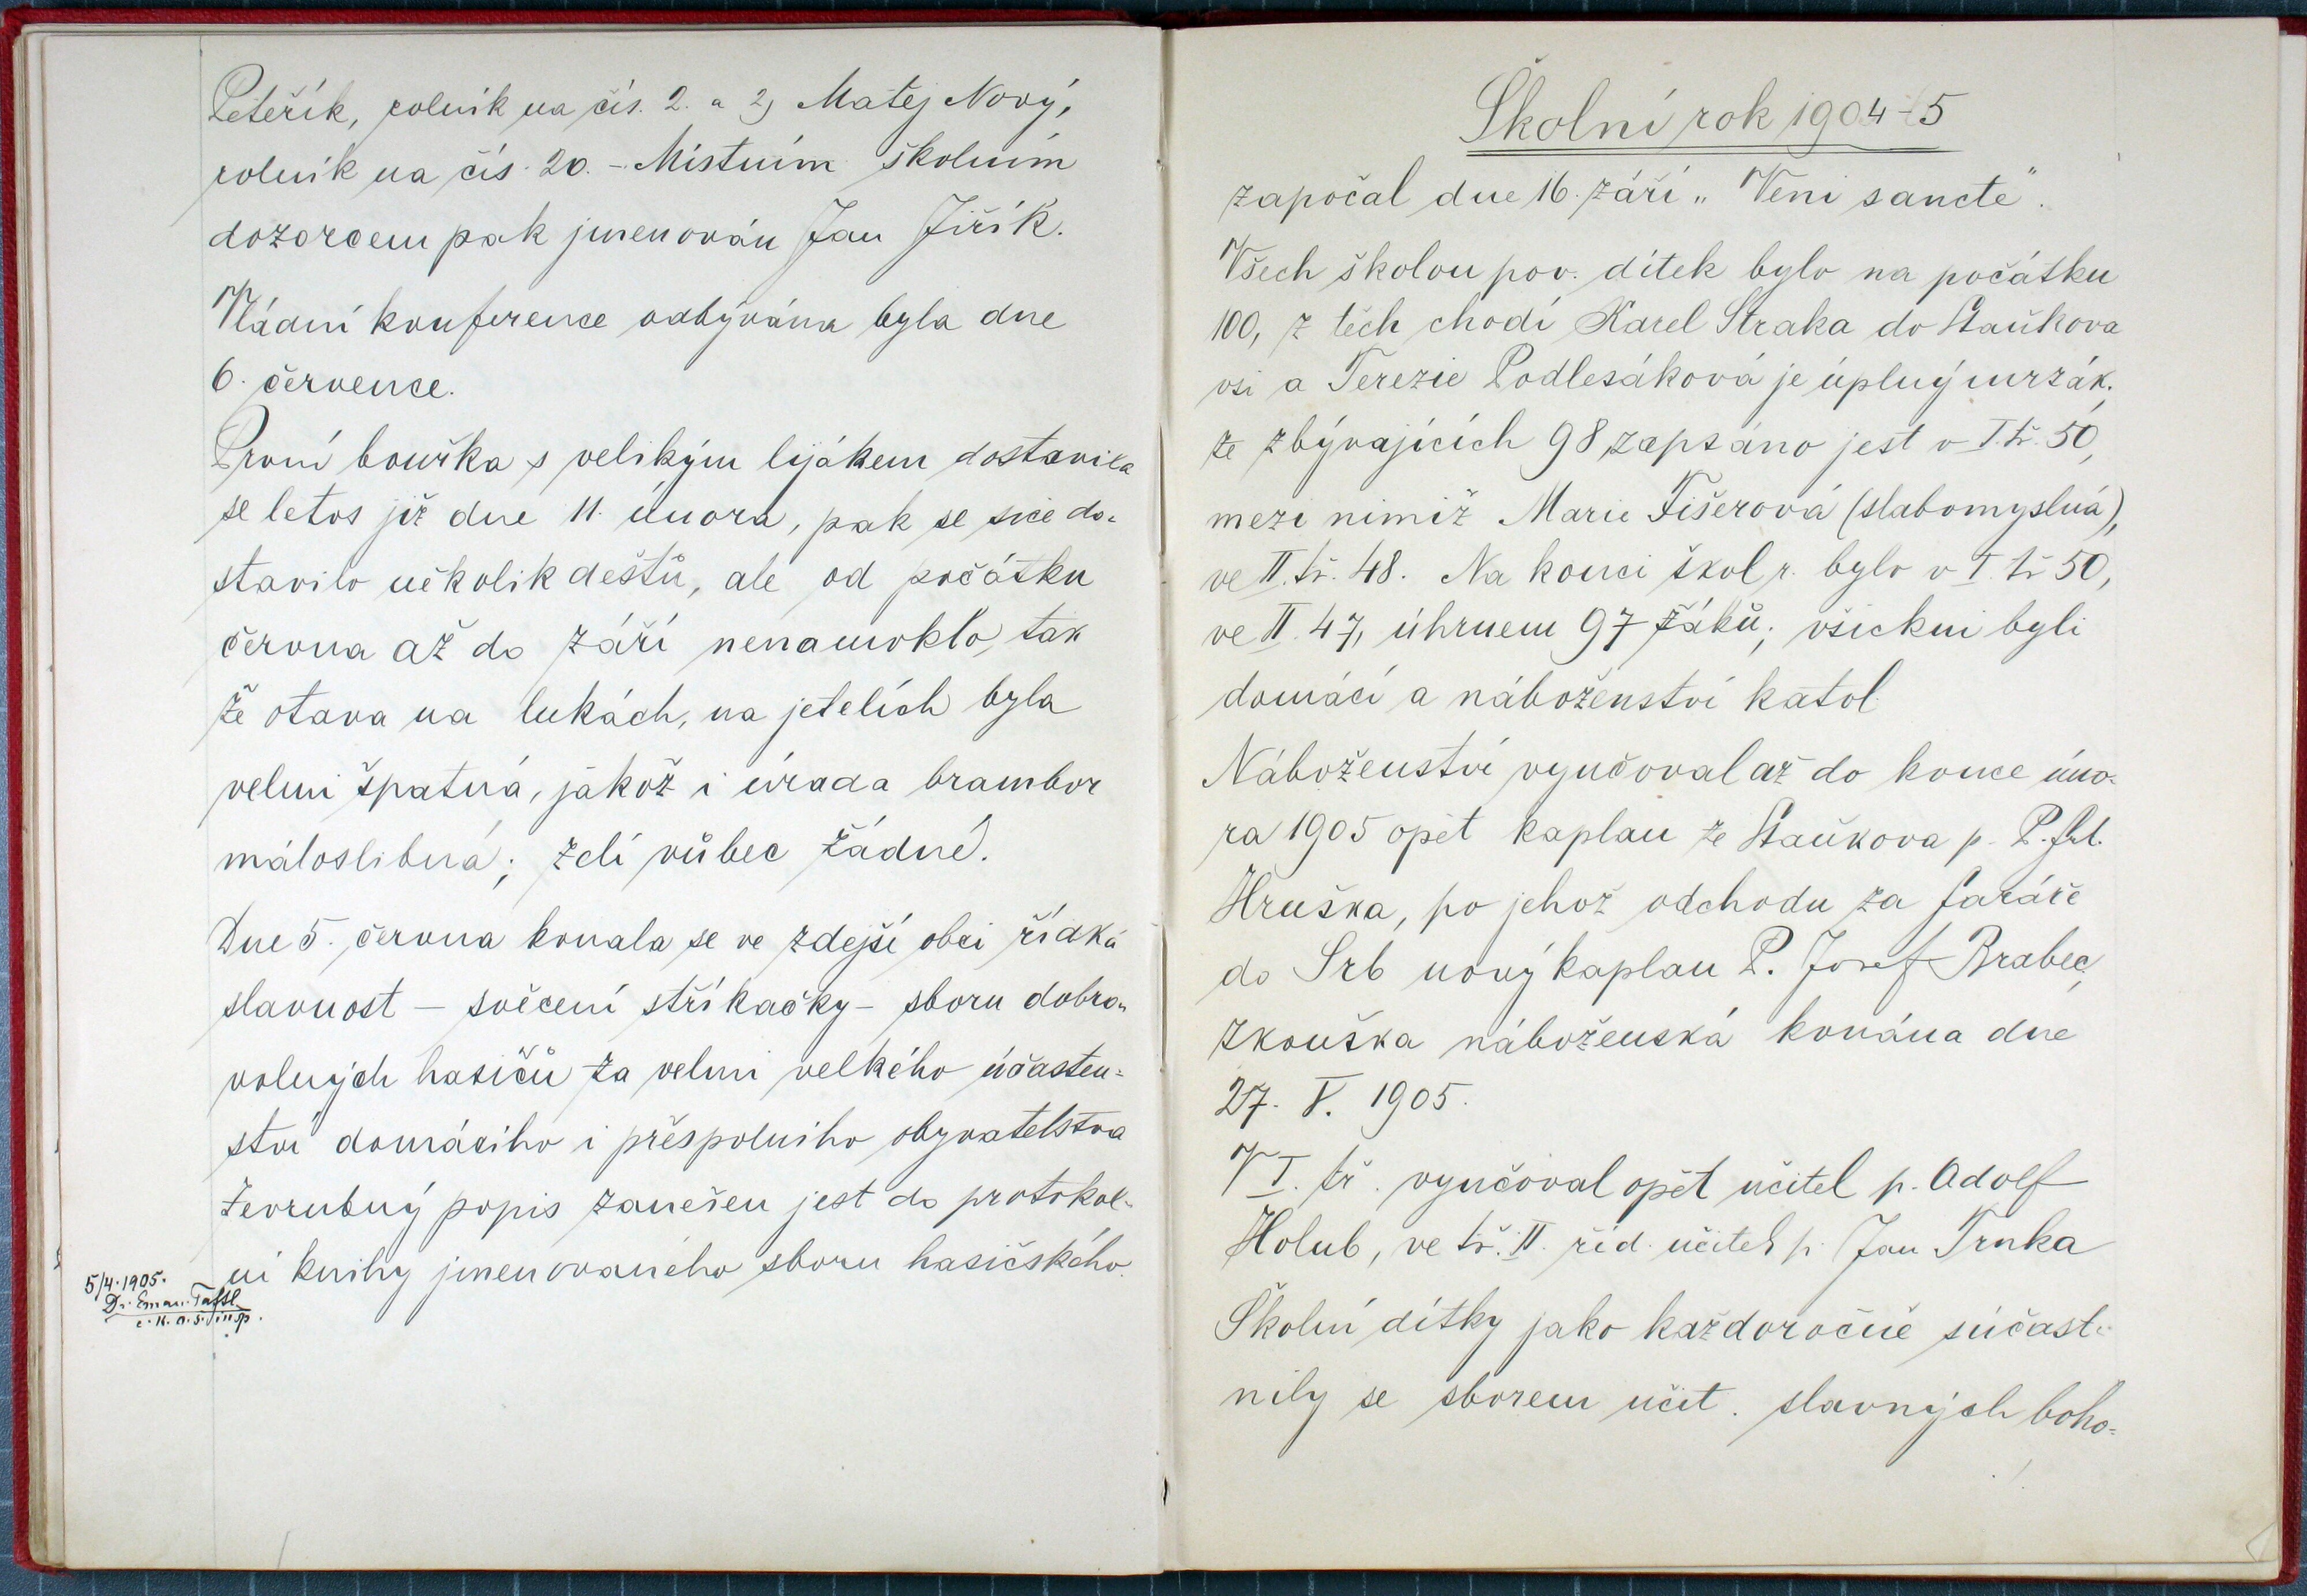 Peteřík, rolník na čís. 2. a 2) Matěj Nový,
rolník na čís. 20. – Místním školním
dozorcem pak jmenován Jan Jiřík.
Vládní konference odbývána byla dne
6. července.
První bouřka s velikým lijákem dostavila
se letos již dne 11. února, pak se sice do-
stavilo několik dešťů, ale od počátku
června až do září nenamoklo, tak
že otava na lukách, na jetelích byla
velmi špatná, jakož i úroda brambor
máloslibná; zelí vůbec žádné.
Dne 5. června konala se ve zdejší obci řídká
slavnost – svěcení stříkačky – sboru dobro-
volných hasičů za velmi velkého účasten-
ství domácího i přespolního obyvatelstva
Zevrubný popis zanešen jest do protokol-
ní knihy jmenovaného sboru hasičského.
5/4. 1905.
Dr. Eman. Taftl
c. k. o. š. insp.
Školní rok 1904-5
započal dne 16. září „Veni sancte".
Všech školou pov. dítek bylo na počátku
100, z těch chodí Karel Straka do Staňkova
vsi a Terezie Podlesáková je úplný mrzák,
ze zbývajících 98 zapsáno jest v I. tř. 50,
mezi nimiž Marie Fišerová (slabomyslná),
ve II. tř. 48. Na konci škol r. bylo v I. tř 50,
ve II. 47, úhrnem 97 žáků; všickni byli
domácí a náboženství katol.
Náboženství vyučoval až do konce úno-
ra 1905 opět kaplan ze Staňkova p. P.
Hruška, po jehož odchodu za faráře
do Srb nový kaplan P. Josef Brabec,
zkouška náboženská konána dne
27. V. 1905.
V I. tř. vyučoval opět učitel p. Adolf
Holub, ve tř. II. říd. učitel p. Jan Trnka
Školní dítky jako každoročně súčast-
nily se sborem učit. slavných boho-